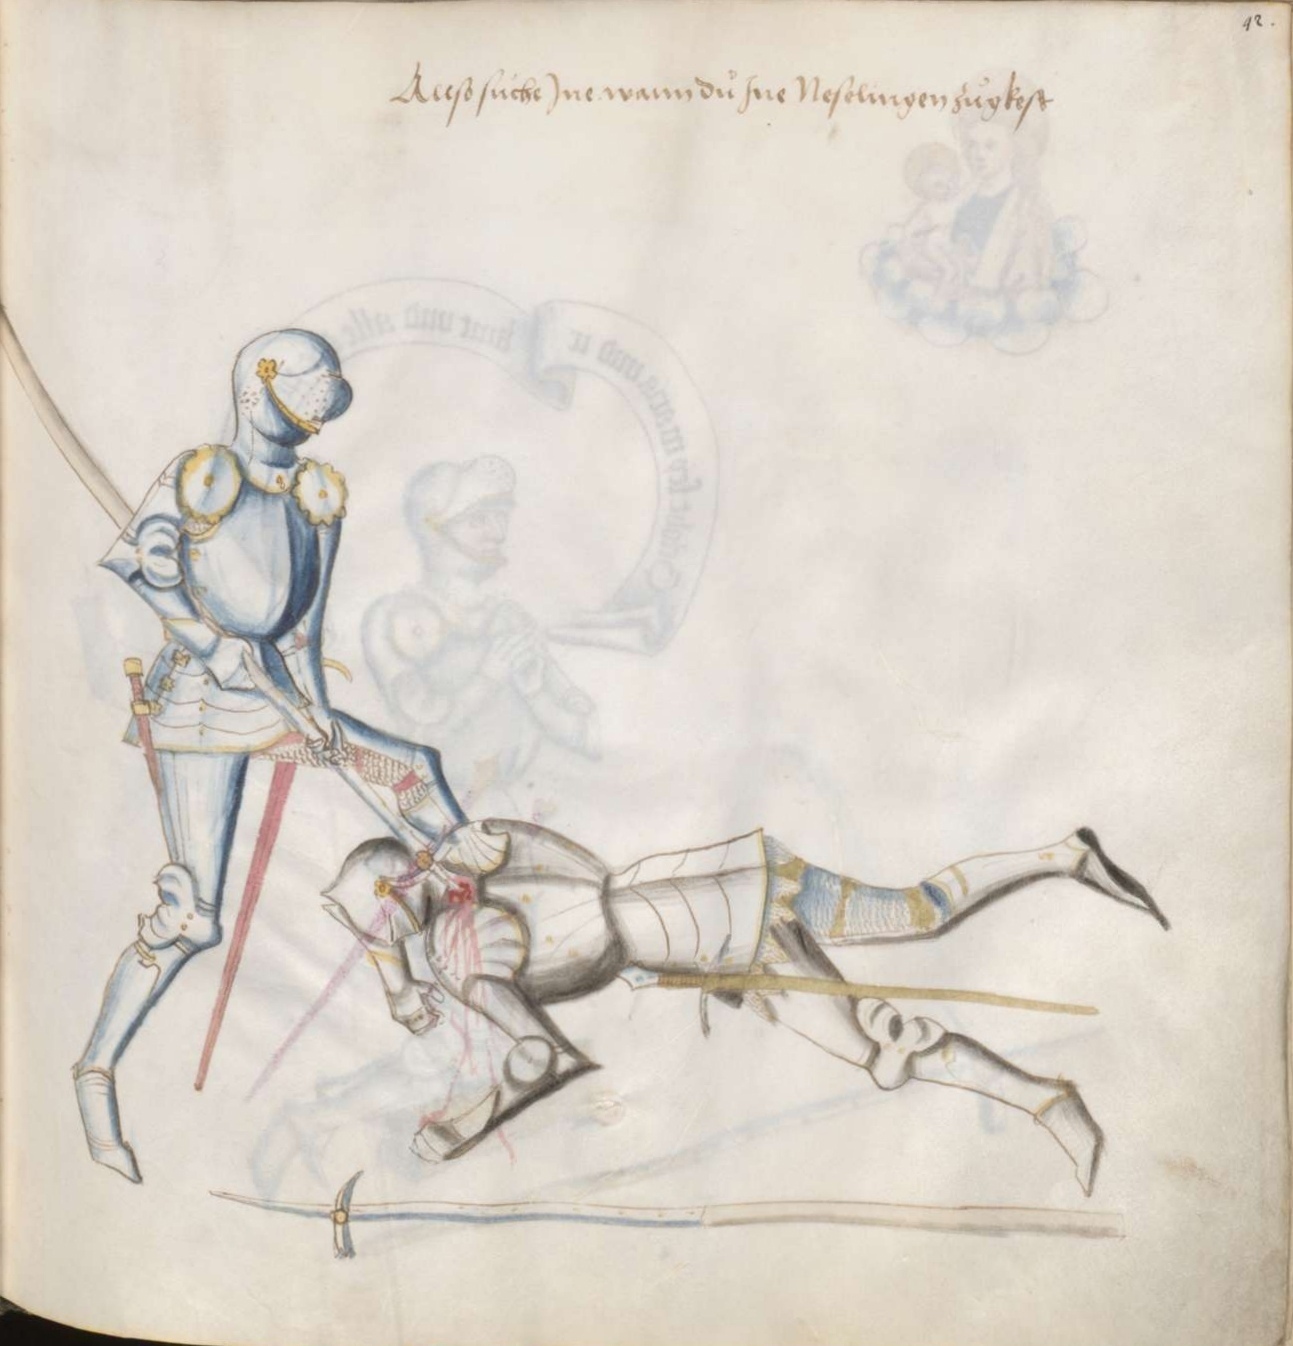 42.
Allso suche Jne wann dů Jne Neselingen zůgkest